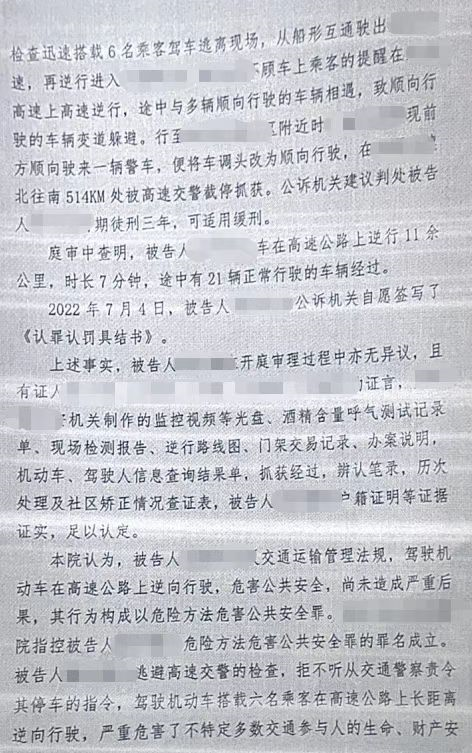 检查迅速搭载6名乘客驾车逃离现场，从船形互通驶出
速，再逆行进入 不顾车上乘客的提醒在
高速上高速逆行，途中与多辆顺向行驶的车辆相遇，致顺向行
驶的车辆变道躲避。行至 附近时 现前
方顺向驶来一辆警车，便将车调头改为顺向行驶，在
北往南514KM处被高速交警截停抓获。公诉机关建议判处被告
人 期徒刑三年，可适用缓刑。
庭审中查明，被告人 车在高速公路上逆行11余
公里，时长7分钟，途中有21辆正常行驶的车辆经过。
2022年7月4日，被告人 公诉机关自愿签写了
《认罪认罚具结书》。
上述事实，被告人 开庭审理过程中亦无异议，且
有证人 的证言，
机关制作的监控视频等光盘、酒精含量呼气测试记录
单、现场检测报告、逆行路线图、门架交易记录、办案说明，
机动车、驾驶人信息查询结果单，抓获经过，辨认笔录，历次
处理及社区矫正情况查证表，被告人 户籍证明等证据
证实，足以认定。
本院认为，被告人 交通运输管理法规，驾驶机
动车在高速公路上逆向行驶，危害公共安全，尚未造成严重后
果，其行为构成以危险方法危害公共安全罪。
院指控被告人 危险方法危害公共安全罪的罪名成立。
被告人 逃避高速交警的检查，拒不听从交通警察责令
其停车的指令，驾驶机动车搭载六名乘客在高速公路上长距离
逆向行驶，严重危害了不特定多数交通参与人的生命、财产安